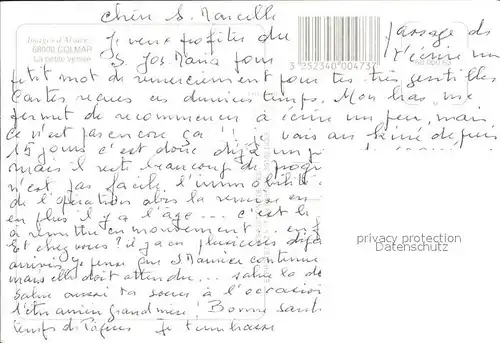 Chère S. Marcelle
Images d'Alsace
68000 COLMAR
La petite Venise
Je veux profiter du passage de
S. Jos. Maria pour t'écrire un
petit mot de remerciement pour tes très gentilles
cartes reçues ces derniers temps. Mon bras me
permet de recommencer à écrire un peu, mais
ce n'est pas encore ça ! je vais au kiné depuis
15 jours c'est donc déjà un
mais il reste beaucoup de
n'est pas facile, l'immobilité
de l'opération après la remise en
en plus il y a l'âge... c'est le
à remettre en mouvement...
Et chez vous ? il y a eu plusieurs
arrivées je pense que S Maurice continue
mais elle doit attendre... salue la
salue aussi ta soeur à l'occasion
l'être arrière grand mère ! Bonne
temps de Pâques Je t'embrasse
3 252340 004737
privacy protection
Datenschutz